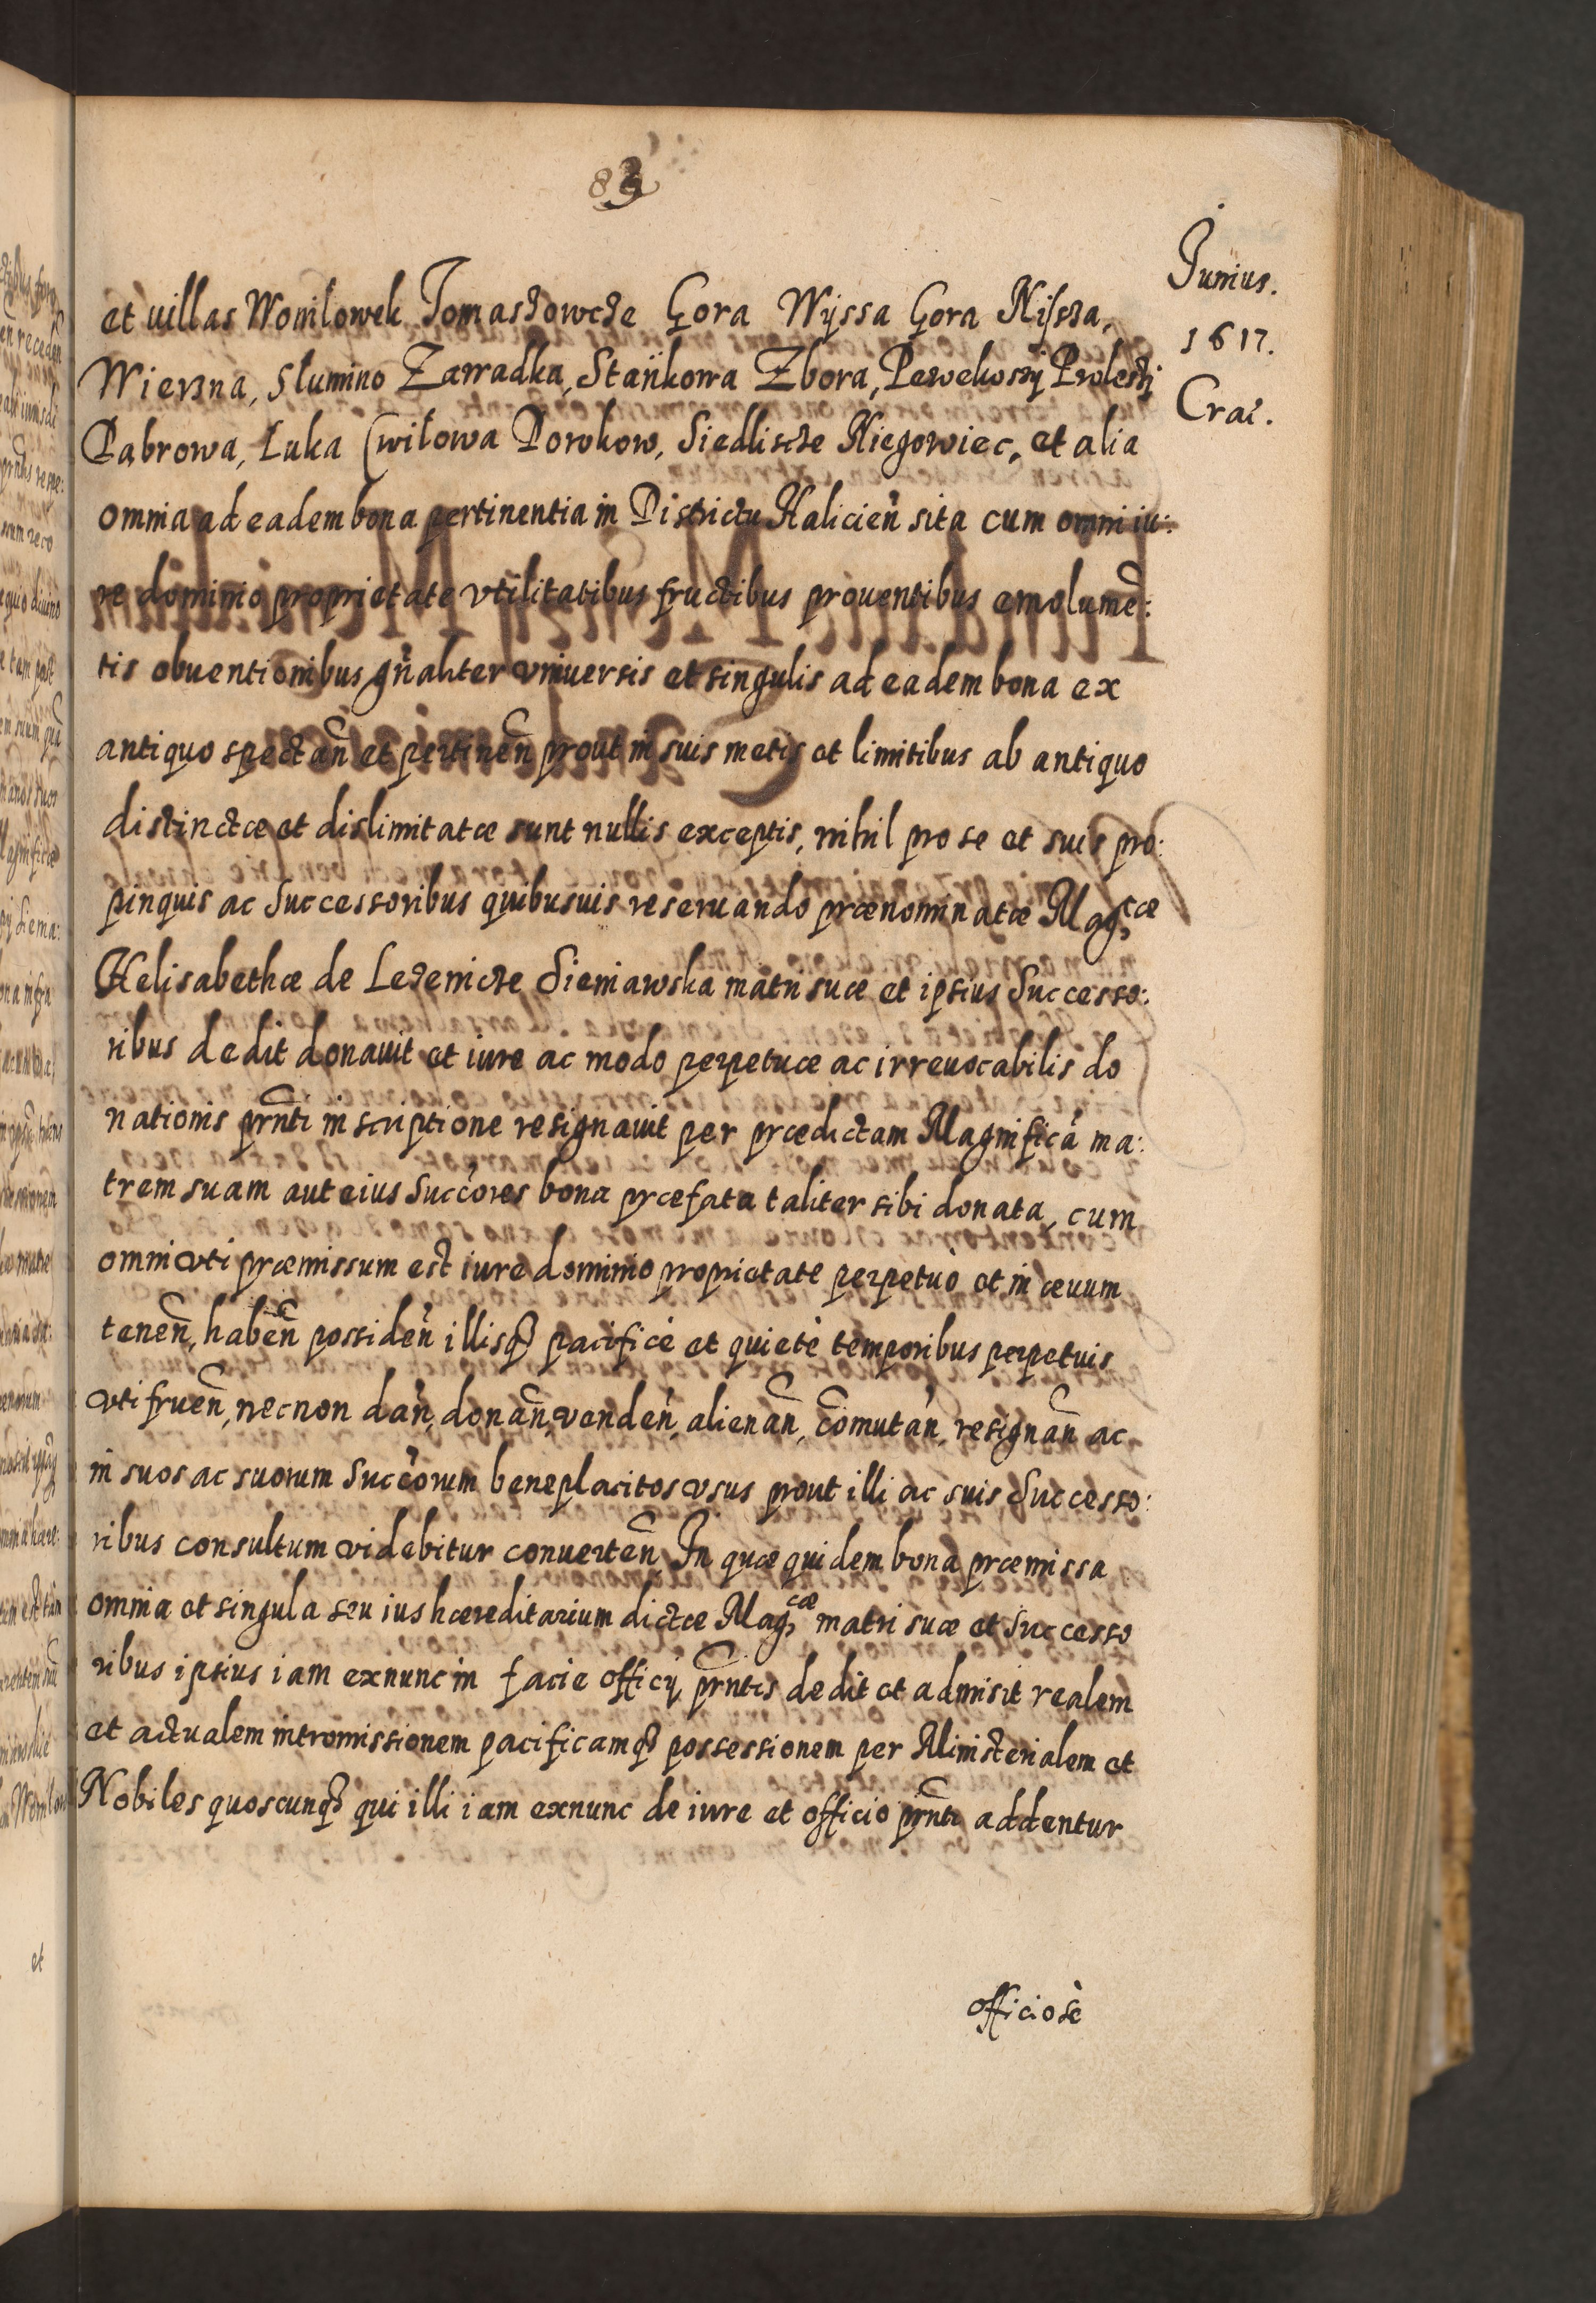 83
Junius.
1617.
Crac.
et uillas Womlowek Tomaszowcze Gora Wÿssa Gora Nissza,
Wierzna, Slumino Zawadka, Stańkowa Zbora,
Dąbrowa, Luka Cwilowa Dowkow, Siedliscze Niegowiec, et alia
omnia ad eadem bona pertinentia in Districtu Halicień sita cum omni iu:
re dominio proprietate vtilitatibus fructibus prouentibus emolumē:
tis obuentionibus gn̄aliter vniuersis et singulis ad eadem bona ex
antiquo spectan̄ et pertinen̄ prout in suis metis et limitibus ab antiquo
distinctæ et dislimitatæ sunt nullis exceptis, nihil pro se et suis pro:
pinquis ac Successoribus quibusuis reseruando prænominatæ Mag,cæ
Helisabethæ de Lezenicze Sieniawska matri suæ et ipsius Successo:
ribus dedit donauit et iure ac modo perpetuæ ac irreuocabilis do
nationis prn̄ti inscriptione resignauit per prædictam Magnificā ma:
trem suam aut eius Succōres bona præfata taliter sibi donata, cum
omni vti præmissum est iure dominio proprietate perpetuo et in æuum
tenen̄, haben̄ possiden̄ illisq3 pacificè et quietè temporibus perpetuis
vti fruen̄, necnon dan̄, donan̄, venden̄, alienan̄, cōmutan̄, resignan̄ ac
in suos ac suorum Succōrum beneplacitos vsus prout illi ac suis Successo:
ribus consultum videbitur conuerten̄ In quæ quidem bona præmissa
omnia et singula seu ius hæreditarium dictæ Mag,cæ matri suæ et Successo
ribus ipsius iam exnunc in facie officÿ prn̄tis dedit et admisit realem
et actualem intromissionem pacificamq3 possessionem per Ministerialem et
Nobiles quoscunq3 qui illi iam exnunc de iure et officio prn̄ti addentur
officiosè
et